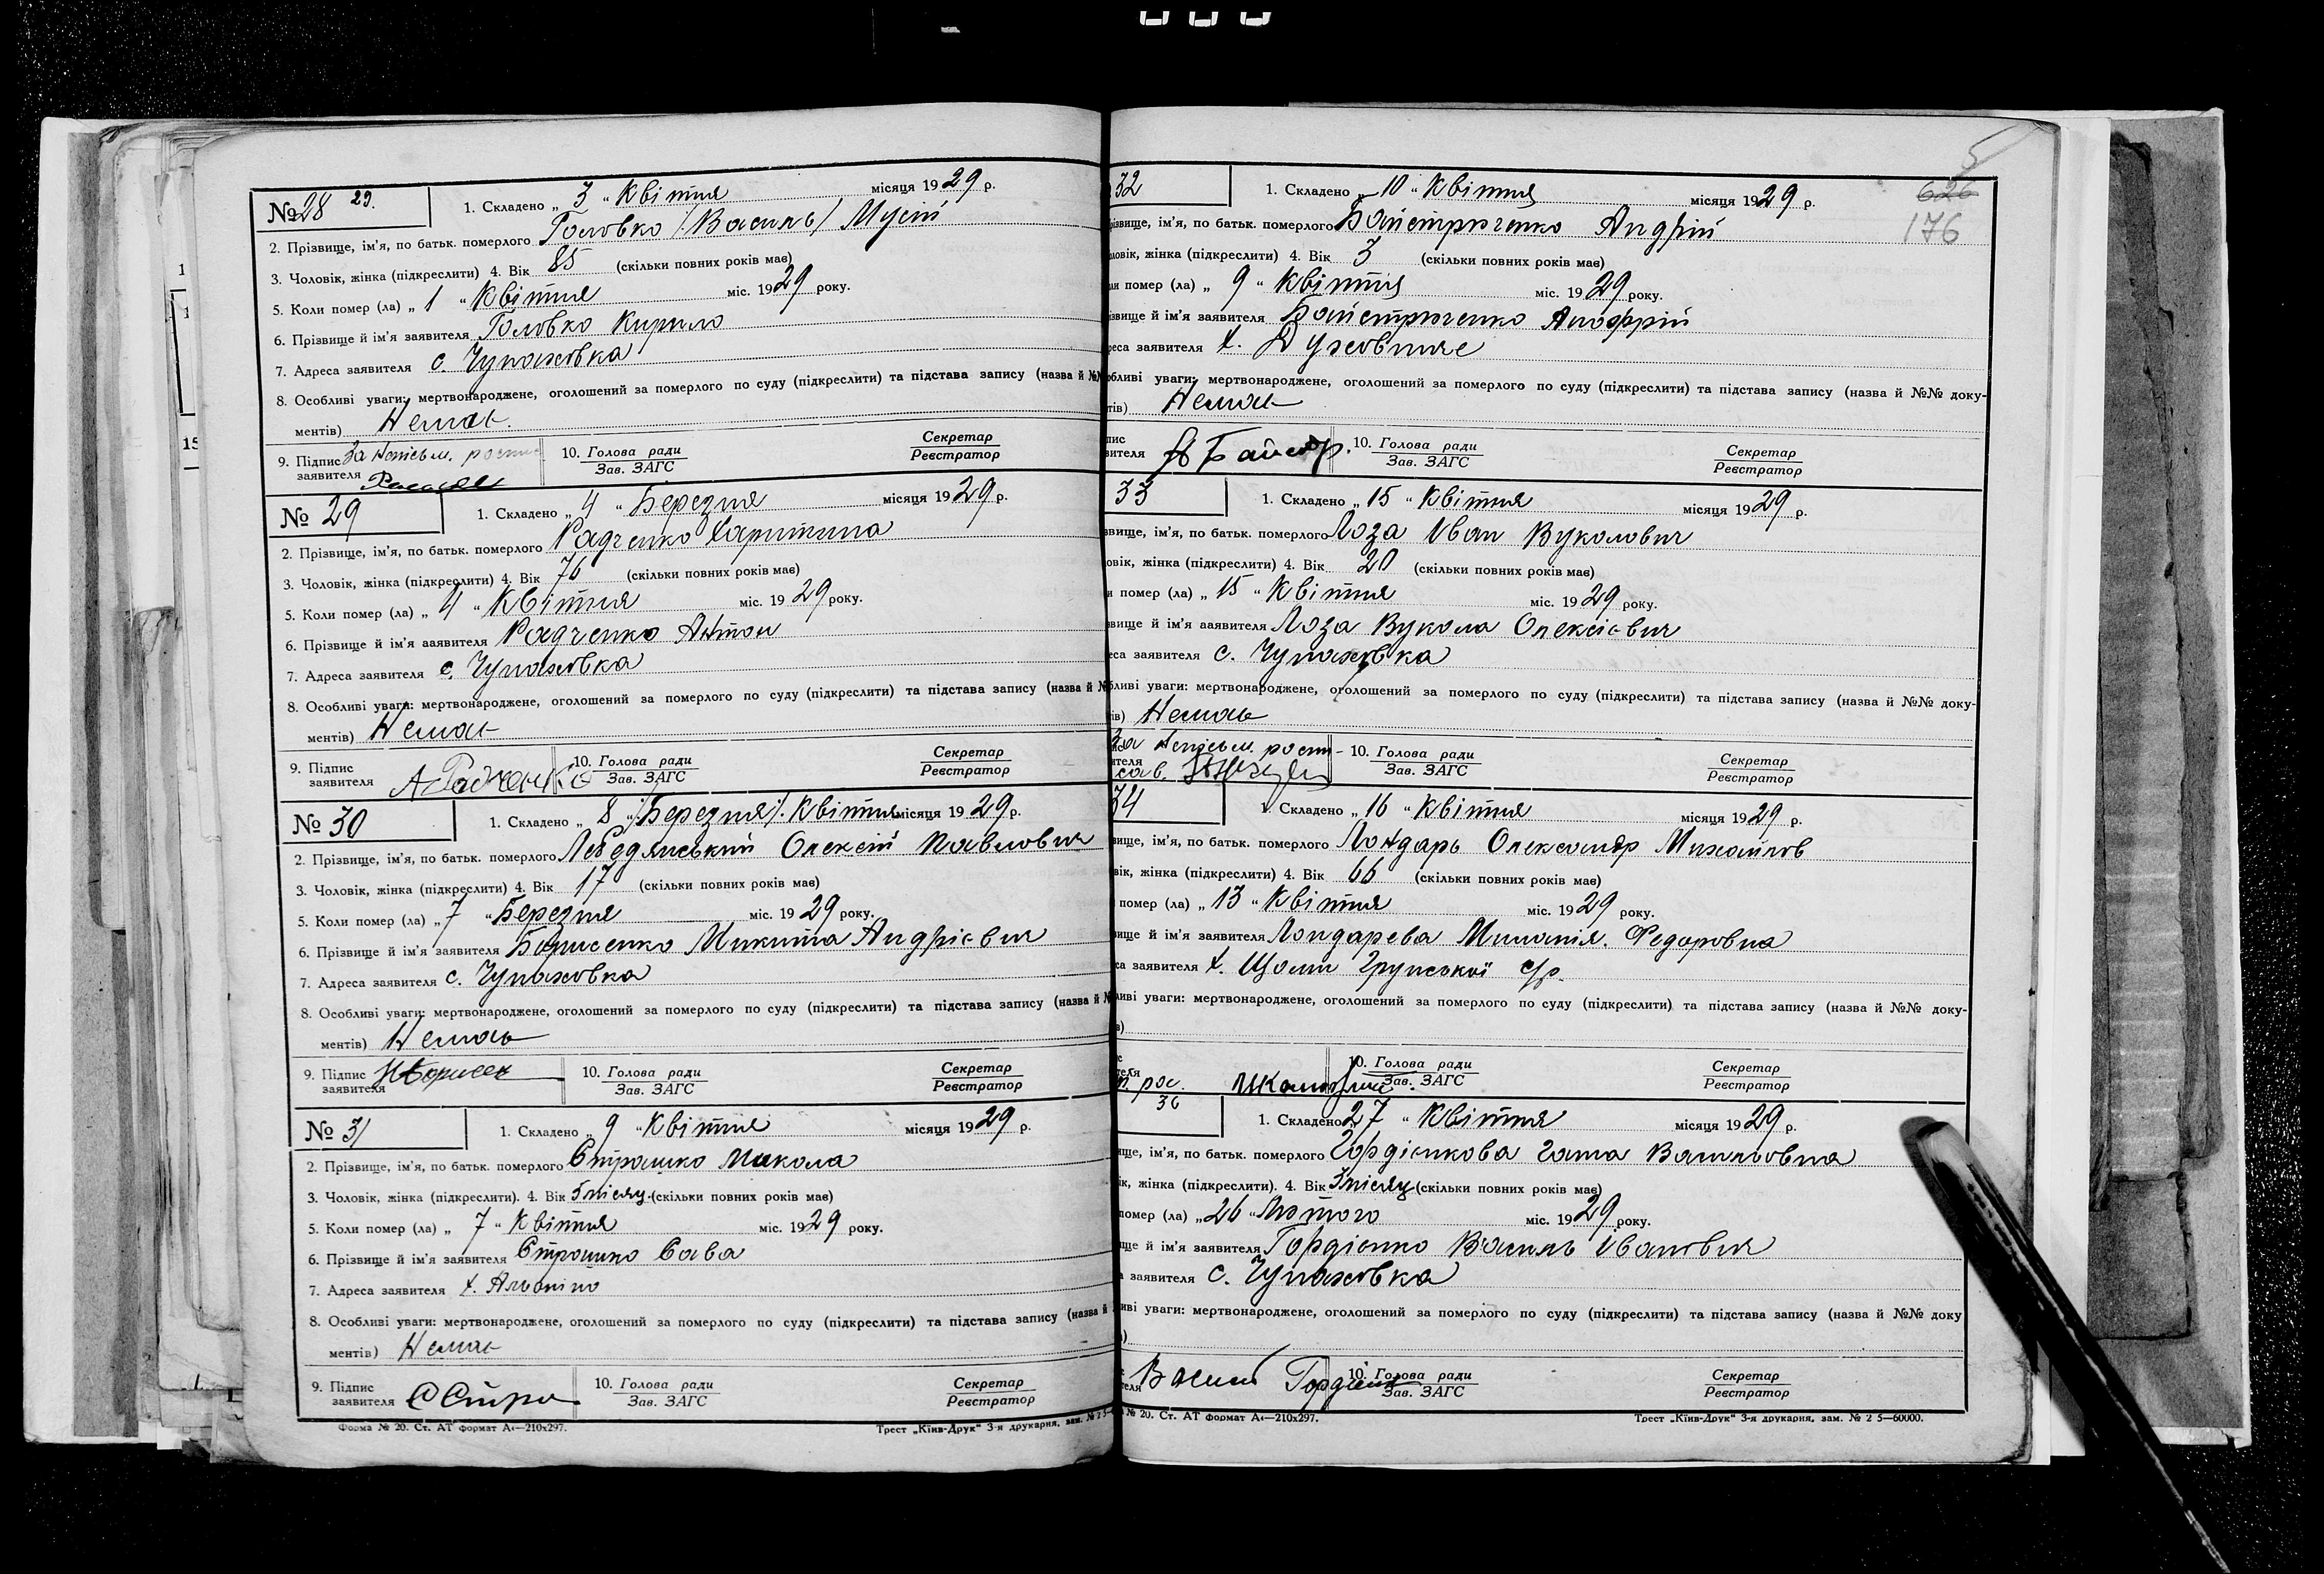 №28 29. 1. Складено „ 3 " Квітня місяця 1929 р.
2. Прізвище, ім'я, по батьк. померлого Головко /Василь/ Мусій
3. Чоловік, жінка (підкреслити) 4. Вік 85 (скільки повних років має)
5. Коли помер (ла) „ 1 " Квітня міс. 1929 року.
6. Прізвище й ім'я заявителя Головко Кирило
7. Адреса заявителя с. Чупаховка
8. Особливі уваги: мертвонароджене, оголошений за померлого по суду (підкреслити) та підстава запису (назва й №№
ментів) Немає.
9. Підпис заявителя За непісьм. роспис
10. Голова ради
Зав. ЗАГС
Секретар
Реєстратор
№ 29 1. Складено „ 4 " Березня місяця 1929 р.
2. Прізвище, ім'я, по батьк. померлого Радченко Харитина
3. Чоловік, жінка (підкреслити) 4. Вік 76 (скільки повних років має)
5. Коли помер (ла) „ 4 " Квітня міс. 1929 року.
6. Прізвище й ім'я заявителя Радченко Антон
7. Адреса заявителя с. Чупаховка
8. Особливі уваги: мертвонароджене, оголошений за померлого по суду (підкреслити) та підстава запису (назва й №
ментів) Немає
9. Підпис заявителя А Радченко
10. Голова ради
Зав. ЗАГС
Секретар
Реєстратор
№ 30 1. Складено „ 8 " /Березня/. Квітня місяця 1929 р.
2. Прізвище, ім'я, по батьк. померлого Лебедянський Олексій Павлович
3. Чоловік, жінка (підкреслити) 4. Вік 17 (скільки повних років має)
5. Коли помер (ла) „ 7 " Березня міс. 1929 року.
6. Прізвище й ім'я заявителя Борисенко Микита Андрієвич
7. Адреса заявителя с. Чупаховка
8. Особливі уваги: мертвонароджене, оголошений за померлого по суду (підкреслити) та підстава запису (назва й №
ментів) Немає
9. Підпис заявителя
10. Голова ради
Зав. ЗАГС
Секретар
Реєстратор
№ 31 1. Складено „ 9 " Квітня місяця 1929 р.
2. Прізвище, ім'я, по батьк. померлого Страшко Микола
3. Чоловік, жінка (підкреслити). 4. Вік 5 місяц. (скільки повних років має)
5. Коли помер (ла) „ 7 " Квітня міс. 1929 року.
6. Прізвище й ім'я заявителя Страшко Сава
7. Адреса заявителя х.
8. Особливі уваги: мертвонароджене, оголошений за померлого по суду (підкреслити) та підстава запису (назва й
ментів) Немає
9. Підпис заявителя С Стра
10. Голова ради
Зав. ЗАГС
Секретар
Реєстратор
Форма № 20. Ст. АТ формат А₄—210х297. Трест „Київ-Друк" 3-я друкарня, зам. № 2 5
5
626
176
32 1. Складено „ 10 " Квітня місяця 1929 р.
ізвище, ім'я, по батьк. померлого Байстрюченко Андрій
ловік, жінка (підкреслити) 4. Вік 3 (скільки повних років має)
ли помер (ла) „ 9 " Квітня міс. 1929 року.
ізвище й ім'я заявителя Байстрюченко
реса заявителя х.
обливі уваги: мертвонароджене, оголошений за померлого по суду (підкреслити) та підстава запису (назва й №№ доку-
тів) Немає
пис
вителя А Байстр.
10. Голова ради
Зав. ЗАГС
Секретар
Реєстратор
33 1. Складено „ 15 " Квітня місяця 1929 р.
звище, ім'я, по батьк. померлого Лоза Іван Вуколович
овік, жінка (підкреслити) 4. Вік 20 (скільки повних років має)
и помер (ла) „ 15 " Квітня міс. 1929 року.
звище й ім'я заявителя Лоза Вукола Олексієвич
еса заявителя с. Чупаховка
бливі уваги: мертвонароджене, оголошений за померлого по суду (підкреслити) та підстава запису (назва й №№ доку-
ів) Немає
За непісьм. росп
10. Голова ради
Зав. ЗАГС
Секретар
Реєстратор
34 1. Складено „ 16 " Квітня місяця 1929 р.
вище, ім'я, по батьк. померлого Лондарь Олександр Михайлов
вік, жінка (підкреслити) 4. Вік 66 (скільки повних років має)
помер (ла) „ 13 " Квітня міс. 1929 року.
вище й ім'я заявителя Лондарева Миланія. Федоровна
са заявителя х. Щоми Грунської с/р.
ливі уваги: мертвонароджене, оголошений за померлого по суду (підкреслити) та підстава запису (назва й №№ доку-
в)
рос.
10. Голова ради
Зав. ЗАГС
Секретар
Реєстратор
36 1. Складено 27 " Квітня місяця 1929 р.
ище, ім'я, по батьк. померлого Гордієнкова Галя Васильовна
ік, жінка (підкреслити). 4. Вік 3 місяц. (скільки повних років має)
помер (ла) „ 26 " Лютого міс. 1929 року.
ище й ім'я заявителя Гордієнко Василь Іванович
а заявителя с. Чупаховка
иві уваги: мертвонароджене, оголошений за померлого по суду (підкреслити) та підстава запису (назва й №№ доку
)
Васил Гордієнк
10. Голова ради
Зав. ЗАГС
Секретар
Реєстратор
№ 20. Ст. АТ формат А₄—210х297. Трест „Київ-Друк" 3-я друкарня, зам. № 2 5—60000.